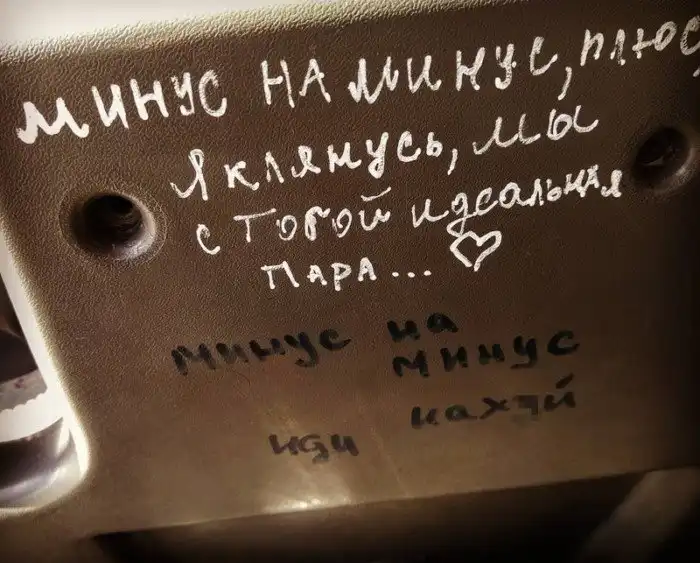 МИНУС НА МИНУС, ПЛЮС,
Я КЛЯНУСЬ, МЫ
С ТОБОЙ ИДЕАЛЬНАЯ
ПАРА...
минус на
минус
иди нахуй